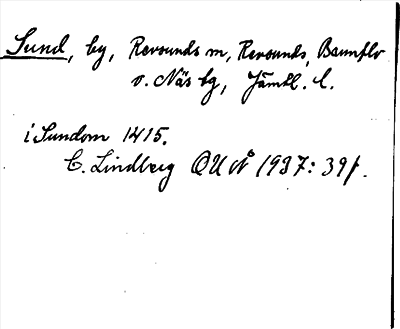 Sund, by, Revsunds sn, Revsunds, Brunflo
o. Näs tg, Jämtl. l.
i Sundom 1415.
C. Lindberg OUÅ 1937: 39 f.